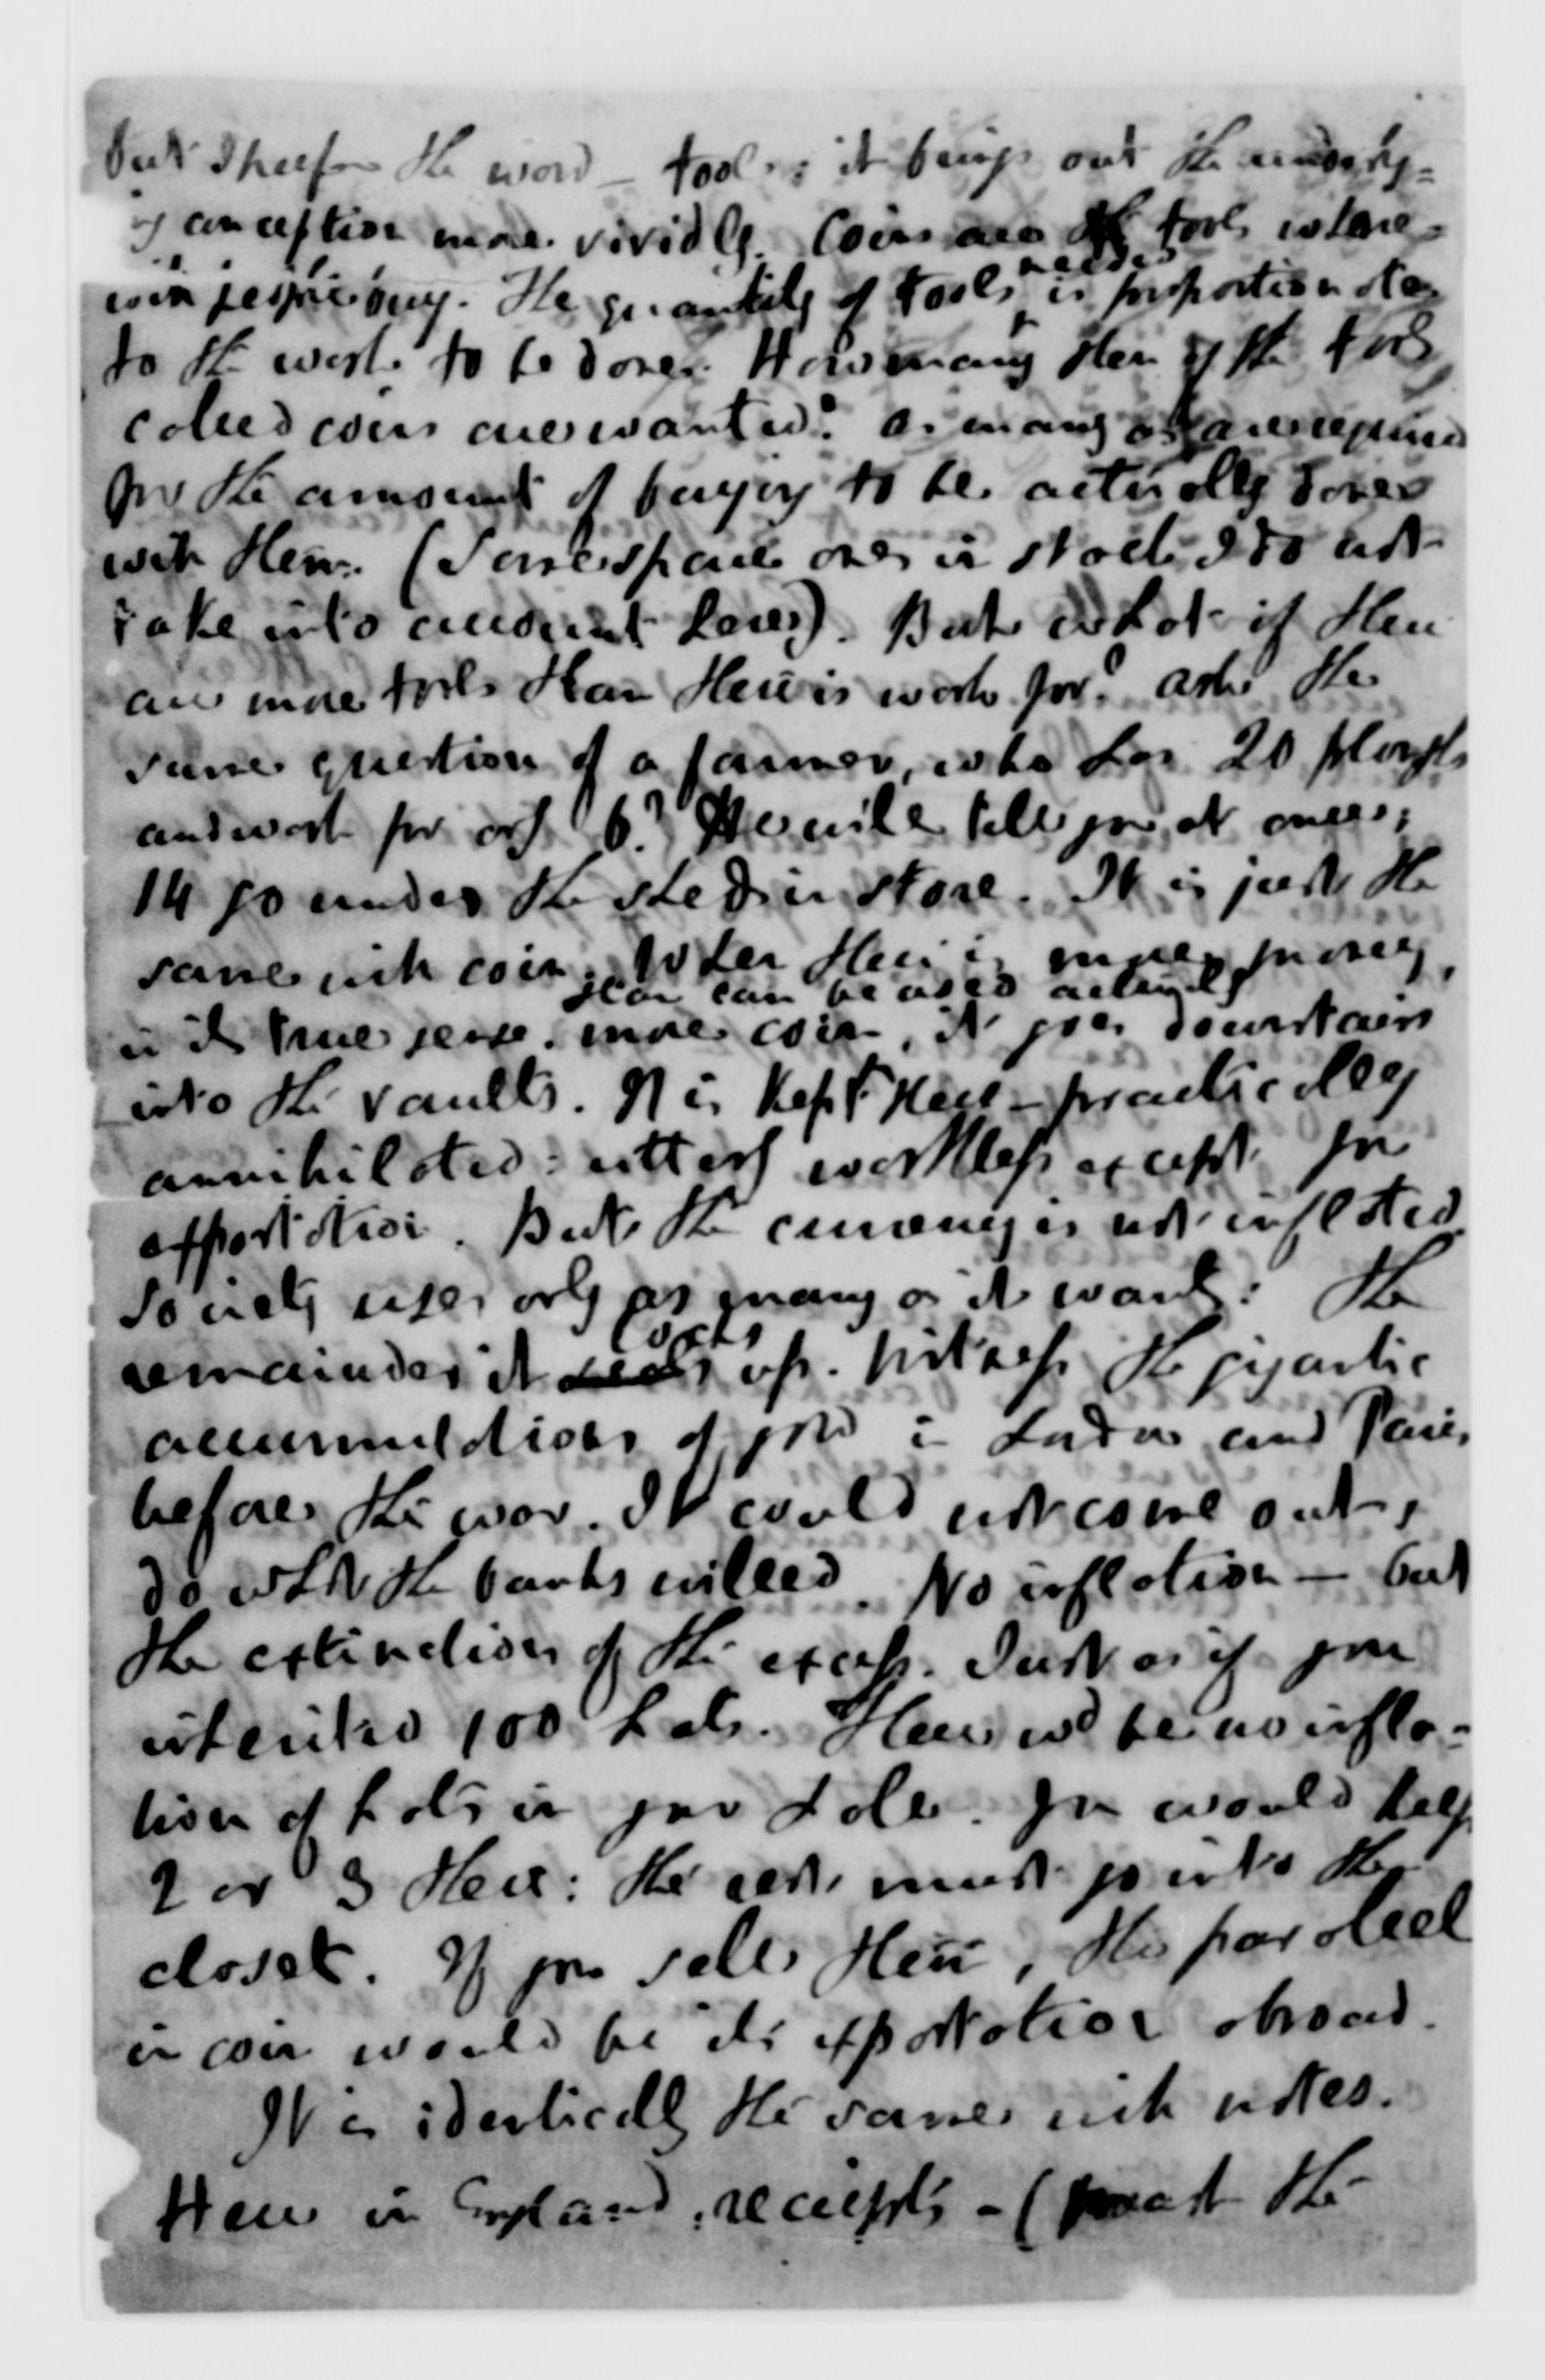 but I prefer the word – tool: it brings out the underly-
ing conception more vividly. Coins are the tools where-
with people buy. The quantity of tools needed is proportionate
to the work to be done. How many then of the tools
called coins are wanted? As many as are required
for the amount of buying to be actually done
with them. (Some spare ones in stock I do not
take into account here). But what if there
are more tools than there is work for? Ask the
same question of a farmer, who has 20 ploughs
and work for only 6? He will tell you at once;
14 go under the shed in store. It is just the
same with coin. When there is more money,
than can be used actually
in its true sense, more coin, it goes downstairs
into the vaults. It is kept there – practically
annihilated: utterly worthless except for
exportation. But the currency is not inflated
Society uses only as many as it wants: the
remainder it locks up. Witness the gigantic
accumulations of gold in London and Paris
before the war. It could not come out,
do what the banks willed. No inflation – but
the extinction of the excess. Just as if you
inherited 100 hats. There wd be no infla-
tion of hats in your hall. You would keep
2 or 3 there: the rest must go into the
closet. If you sell them, the parallel
in coin would be its exportation abroad.
It is identically the same with notes.
Here in England, receipts – ( the